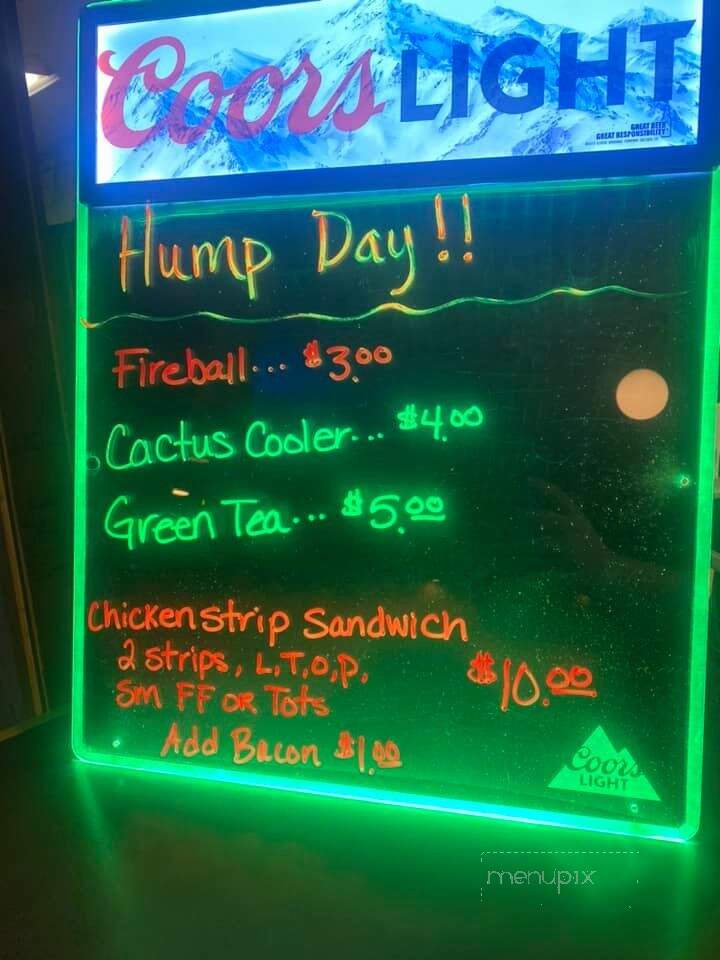 Coors LIGHT
GREAT BEER
GREAT RESPONSIBILITY
Hump Day!!
Fireball... $3.00
Cactus Cooler... $4.00
Green Tea... $5.00
Chicken strip Sandwich
2 strips, L,T,O,P,
$10.00
Sm FF OR Tots
Add Bacon $1.00
Coors
LIGHT
menupix